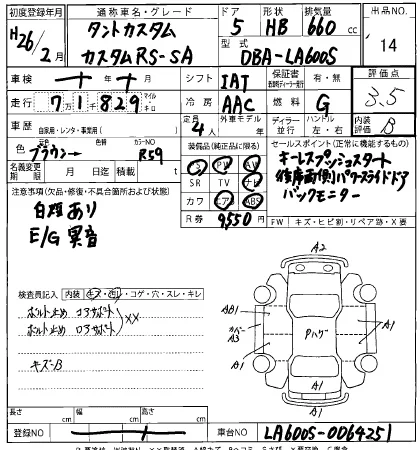 初度登録年月 通称車名・グレード ドア 形状 排気量 出品NO.
H26/2月 タントカスタム カスタムRS-SA 5 HB 660cc 14
型式 DBA-LA600S
車検 シフト IAT 保証書 有・無 評価点 3.5
走行 71829 マイル キロ 冷房 AAC 燃料 G
車歴 自家用・レンタ・事業用( ) 定員 4人 外車モデル年 ディーラー 並行 ハンドル 左・右 内装評価 B
色 ブラウン 色替 カラーNO R59
装備品(純正品に限る)
S PS PW AW
SR TV ナビ
カワ エアB ABS
R券 9,550円
セールスポイント(正常に機能するもの)
キーレスプッシュスタート
後席両側パワースライドドア
バックモニター
名義変更期限 月 日 積載 t
注意事項(欠品・修復・不具合箇所および状態)
白理あり
E/G異音
FW キズ・ヒビ割・リペア跡・X
検査員記入 内装 キズ・汚レ・コゲ・穴・スレ・キレ
ボルト止め コアサポート
ボルト止め コアサポート XX
キズ-B
A2
AB1 A1
カバーA3 Pハゲ
A1 A1
A1
A1
長さ cm 幅 cm 高さ cm
登録NO 車台NO LA600S-0064251